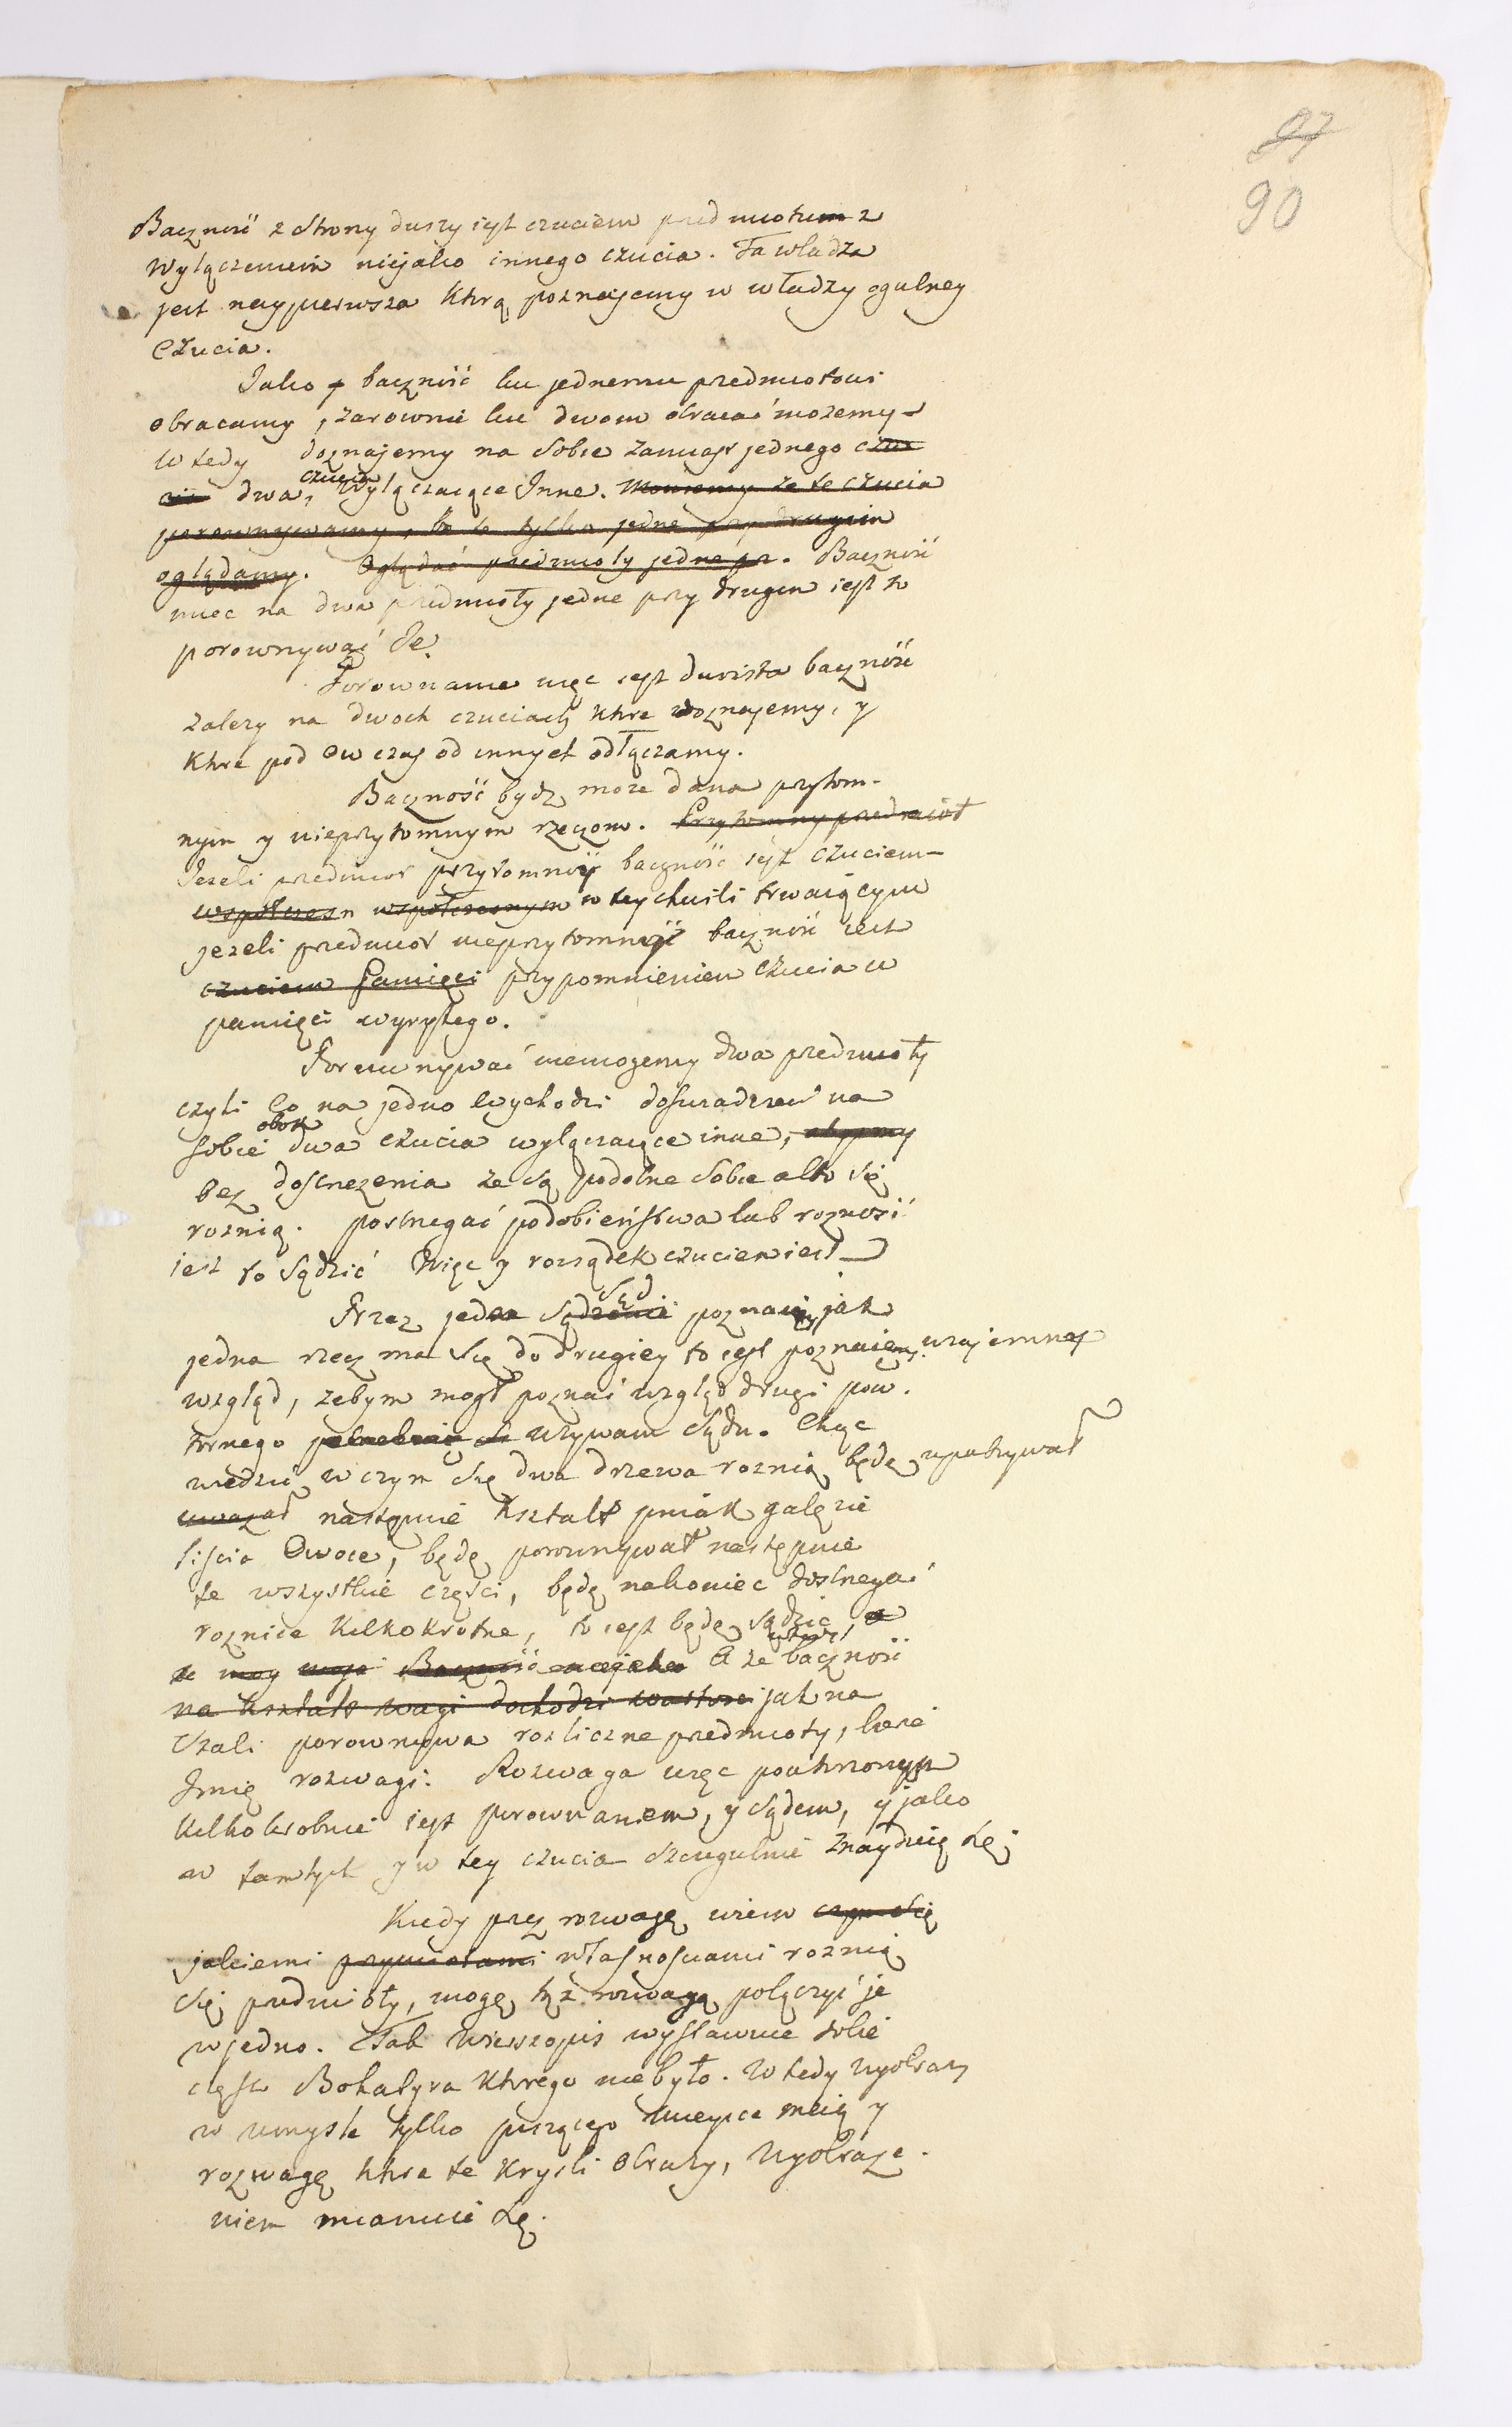 97
90
Baczność z strony duszy iest czuciem przedmiotu z
wyłączeniem niejako innego czucia. Ta władza
jest naypierwsza ktrą poznajemy w władzy ogulney
czucia.
Jako baczność ku jednemu przedmiotowi
obracamy, zarownie ku dwom obracać możemy
wtedy doznajemy na sobie zamiast jednego czu
cia dwa, czucia wyłączaiące Inne. Mowiemy że te czucia
porownywamy, bo te tylko jedne przy drugim
oglądamy. Oglądać przedmioty jedne prz. Baczność
miec na dwa przedmioty jedne przy drugim iest to
porownywać Je.
Porownanie więc iest dwoista baczność
zalezy na dwoch czuciach ktre doznajemy, y
ktre pod ow czas od innych odłączamy.
Baczność bydz może dana przytom-
nym y nieprzytomnym rzeczom. Przytomny przedmiot
Jezeli przedmiot przytomny baczność iest czuciem
wspołczesn wspołczesnym w tey chwili trwaiącym
jezeli przedmiot nieprzytomny baczność iest
czuciem Pamięci przypomnieniem czucia w
pamięci wyrytego.
Porownywać niemożemy dwa przedmioty
czyli co na jedno wychodzi doswiadczać na
sobie obok dwa czucia wyłączaiące inne,
bez dostrzezenia ze są podobne sobie albo się
rożnią. postrzegać podobieństwa lub rożność
jest to sądzić Więc y rozsądek czuciem iest
Przez jeden sądzenie sąd poznaię jak
jedna rzecz ma się do drugiey to iest poznaiemy wzajemny
wzgląd, zebym mogł poznać wzgląd drugi pow-
tornego potrzebuię używam sądu. Chcąc
wiedzieć w czym się dwa drzewa rożnią będę upatrywał
uważał następnie kształt pniak gałęzie
liścia Owoce, będę porownywał następnie
te wszystkie części, będę nakoniec dostrzegać
roznice kilkokrotne, to iest będę sądzić,
Baczność niejako A że baczność
na kształt wagi dochodzi jak na
szali porownywa rozliczne przedmioty, bierze
Imię rozwagi. Rozwaga więc powtorzonym
kilkokrotnie iest porownaniem, y sądem, y jako
w tamtych y w tey czucia szczegulnie znayduią się
Kiedy przez rozwagę wiem czym się
jakiemi przymiotami własnosciami rożnią
się przedmioty, mogę tęż rozwagą połączyć je
w jedno. Tak wierszopis wystawuie sobie
często Bohatyra ktrego nie było. Wtedy wyobrazy
w umyśle tylko piszącego mieysce maią y
rozwagę ktra te kryśli obrazy, wyobraże-
niem mianuie się.